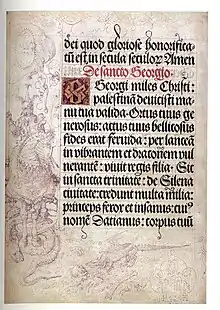 dei quod gloriose honorifica
tū est in secula seculoꝝ Amen
De sancto Georgio.
Georgi miles Christi:
palestinā deuicisti ma
nu tua valida. Ortus tuus ge
nerosus: actus tuus bellicosus
fides erat feruida: per lanceā
in vibrantem et draconem vul
nerantē: viuit regis filia. Sit
in sancta trinitate: de Silena
ciuitate: credunt multa milia:
princeps ferox et insanus: cui⁹
nomē Datianus: corpus tuū